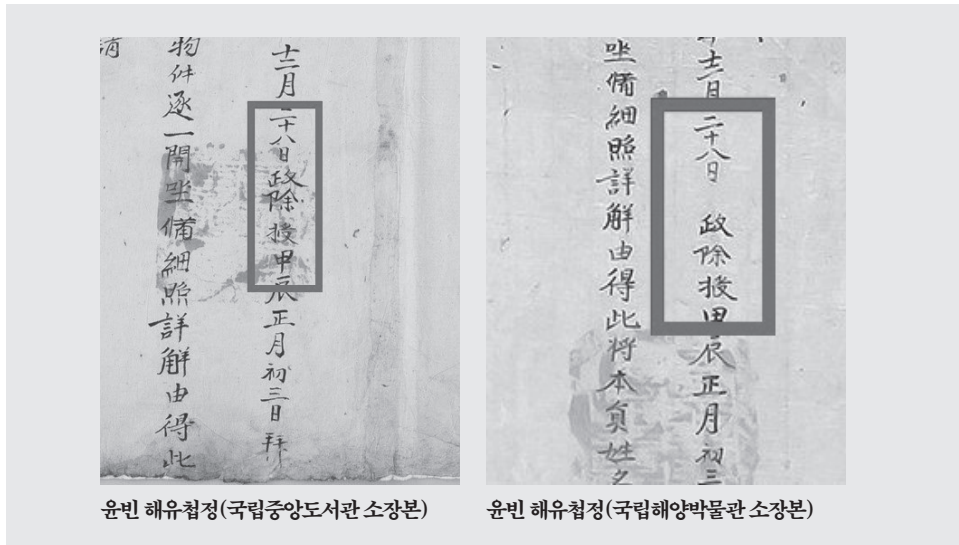 十二月二十八日政除授甲辰正月初三日拜
物件逐一開坐備細照詳解由得此
十二月二十八日 政除授甲辰正月初三
坐備細照詳解由得此將本員姓名
윤빈 해유첩정(국립중앙도서관 소장본)
윤빈 해유첩정(국립해양박물관 소장본)